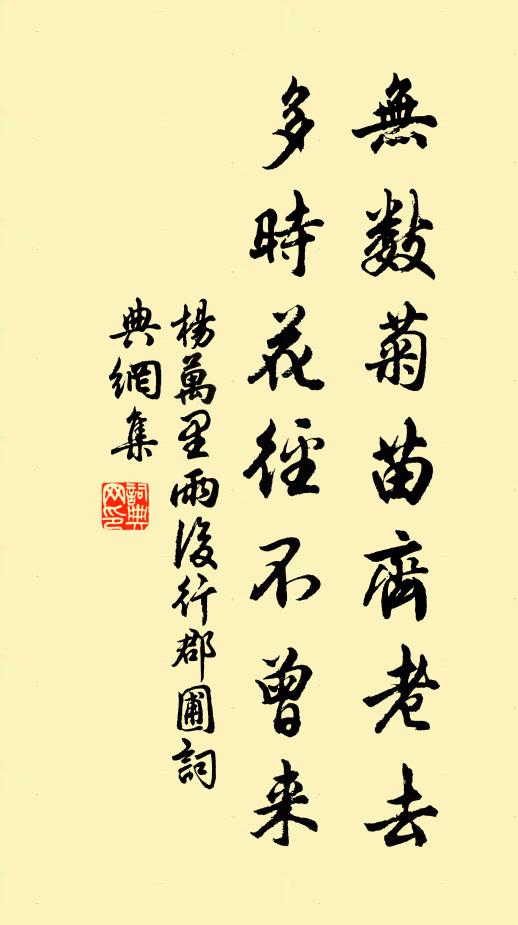 無数菊苗齊老去
多時花徑不曾来
楊萬里雨後行郡圃詞
典網集
詞典
网印